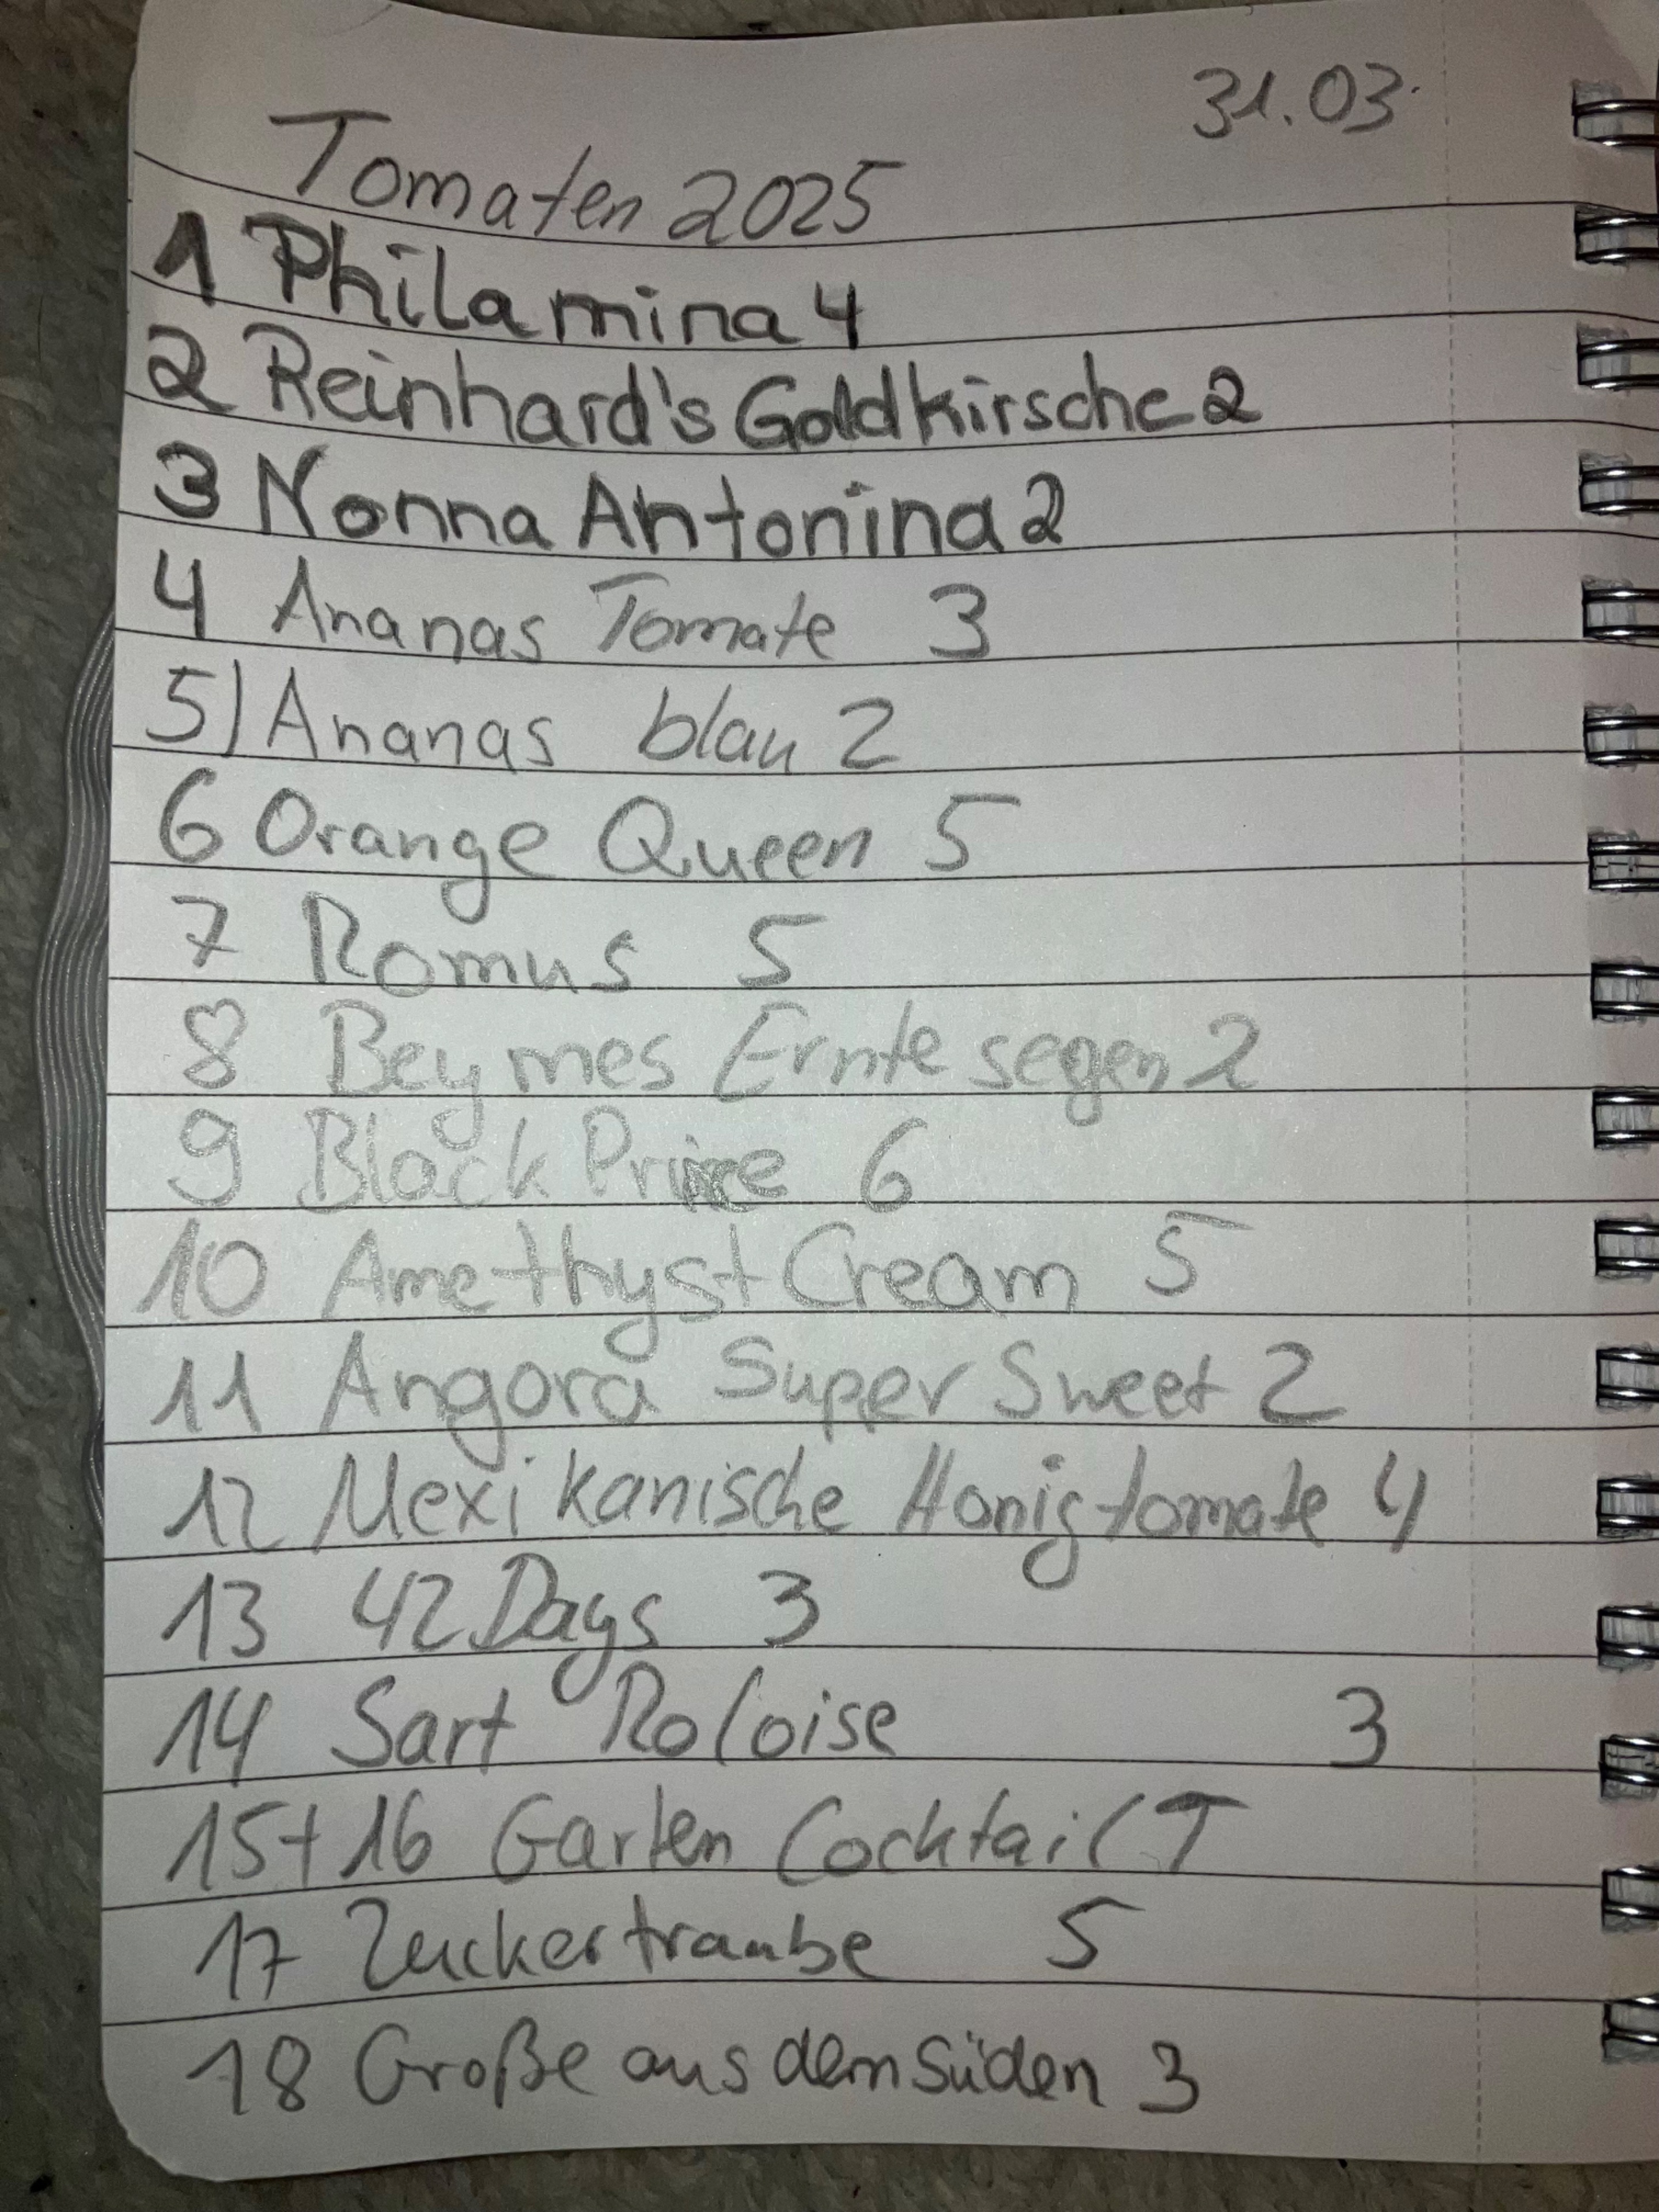 31.03.
Tomaten 2025
1 Philamina 4
2 Reinhard's Goldkirsche 2
3 Nonna Antonina 2
4 Ananas Tomate 3
5) Ananas blau 2
6 Orange Queen 5
7 Romus 5
8 Beymes Erntesegen 2
9 Black Prince 6
10 Amethyst Cream 5
11 Angora Super Sweet 2
12 Mexikanische Honigtomate 4
13 42 Days 3
14 Sart Roloise 3
15+16 Garten Cocktail T
17 Zuckertraube 5
18 Große aus dem Süden 3